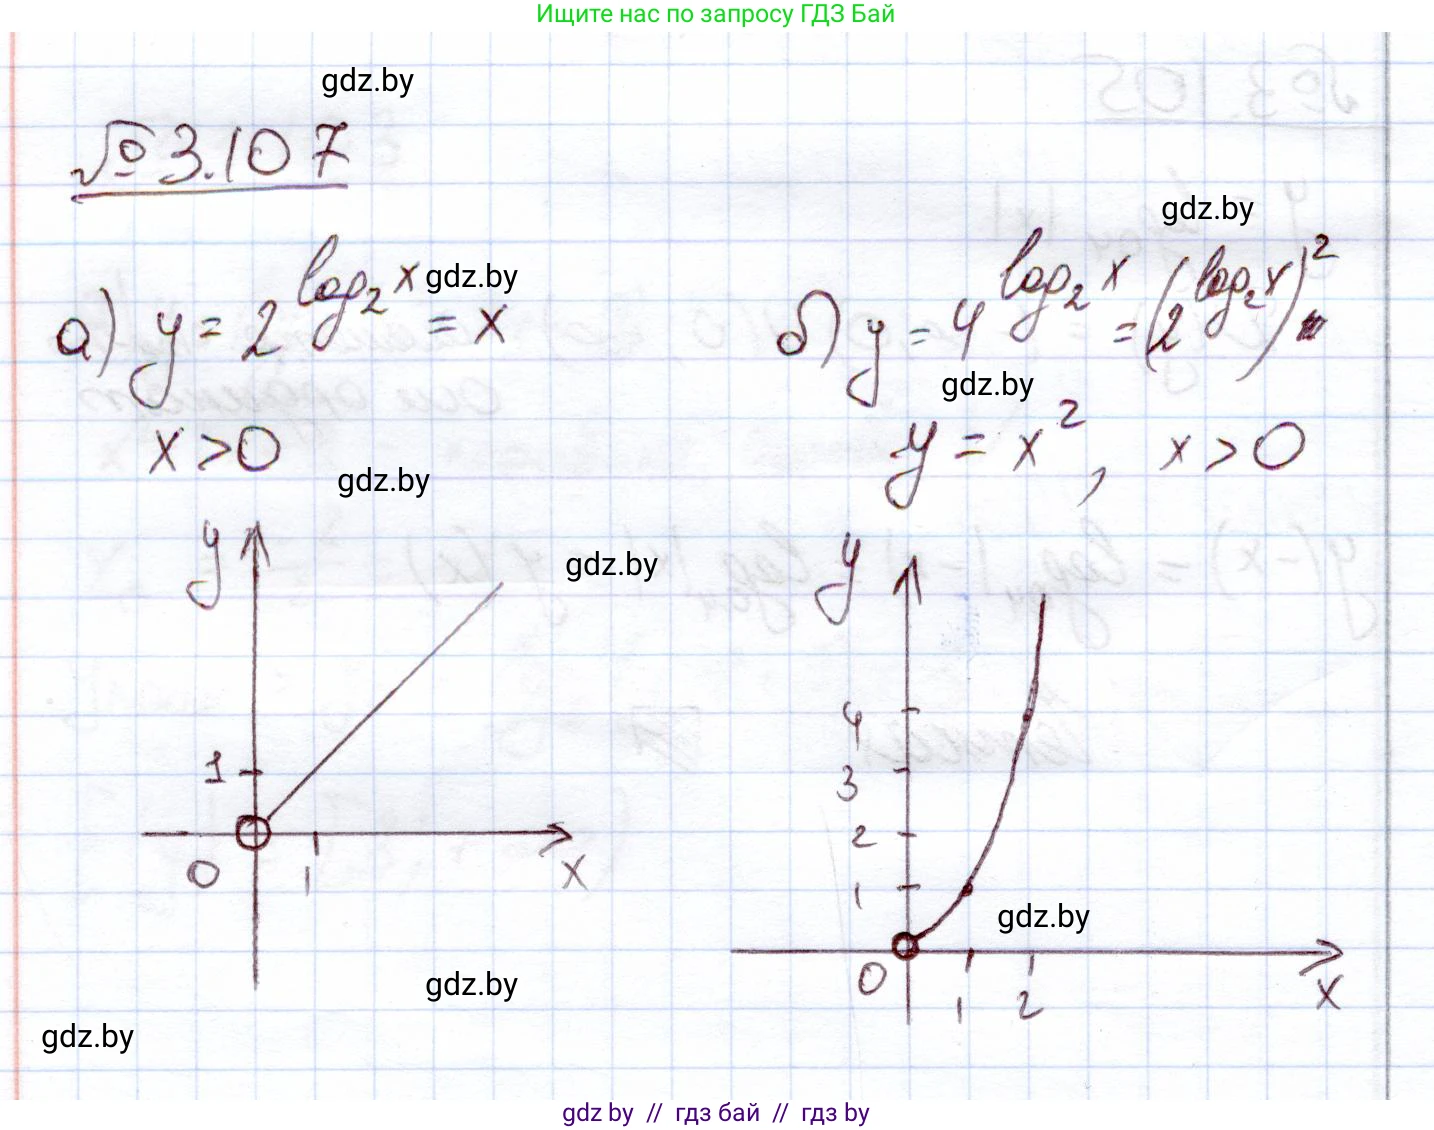 Ищите нас по запросу ГДЗ Бай
gdz.by
№ 3.107
gdz.by
а) y = 2^{log_2 x} = x
gdz.by
б) y = 4^{log_2 x} = (2^{log_2 x})^2
gdz.by
x > 0
y = x^2, x > 0
gdz.by
y
gdz.by
1
0
1
x
y
4
3
2
1
gdz.by
0
1
2
x
gdz.by
gdz.by
gdz by // гдз бай // гдз by